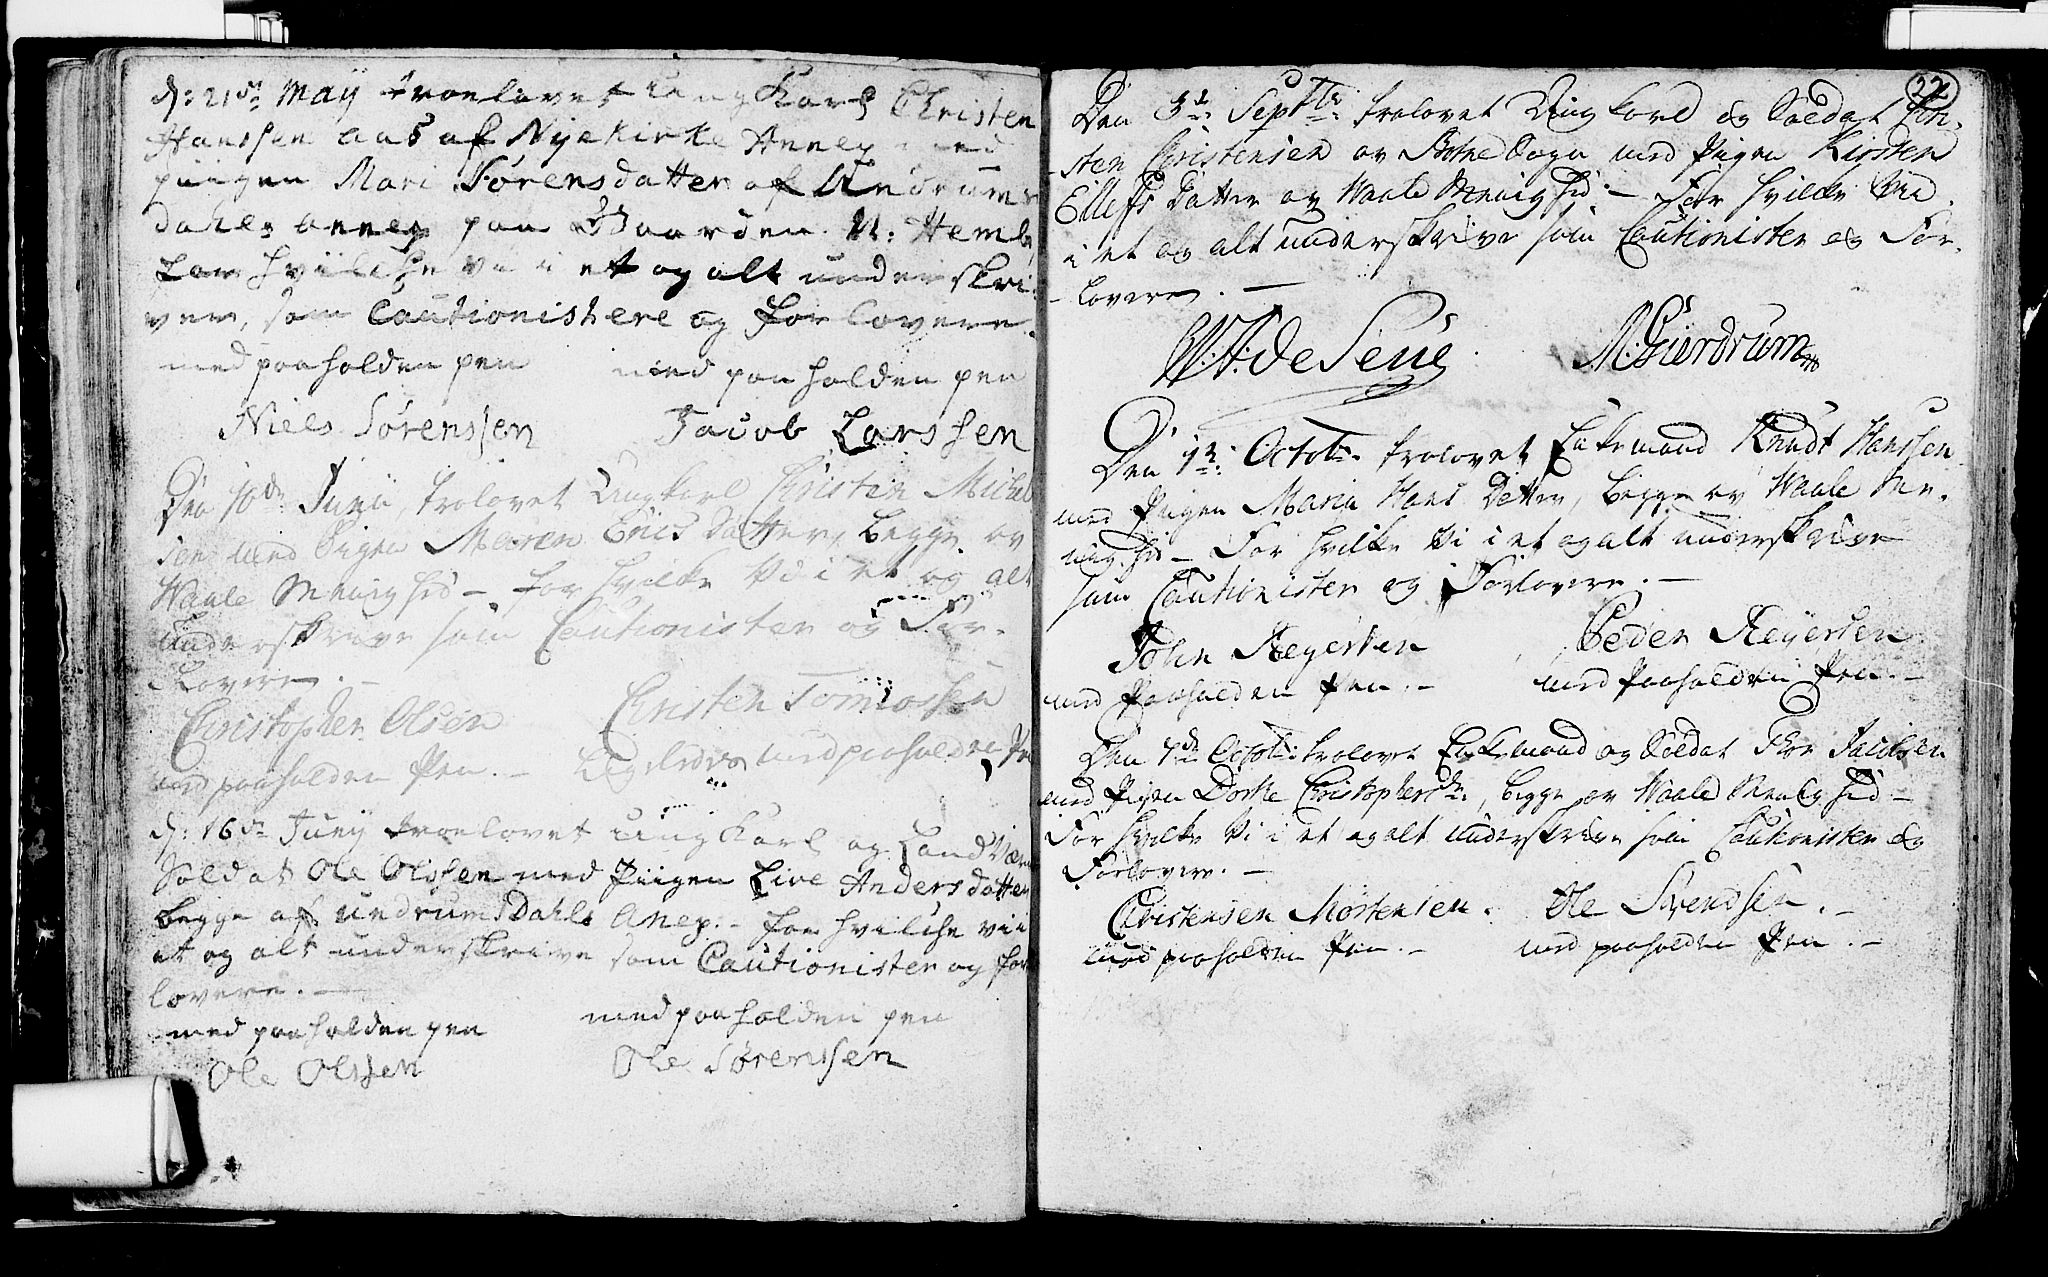 d: 21de May troelovet ung Karl Christen
Hanssen aas af Nÿekirke Annex med
piigen Mari Sørensdatter af Undrums
dahls annex paa Gaarden N: Hemb
for hvilche vi i et og alt underskri:
ver, som Cautionistere og forlovere.
med paaholden pen med paaholden pen
Niels Sørenssen Jacob Larssen
Den 10de Junii trolovet Ungkarl Christen Michel
sen med Pigen Maren Erics Datter, begge av
Waale Menighed – for hvilke Vi i et og alt
underskrive som Cautionister og For-
lovere. –
Christopher Olsen Christen Tomassen
med paaholden Pen. – Ligeledes med paaholden Pen
d: 16de Junÿ troelovet ung Karl og Land Værn
Soldat Ole Olssen med Piigen Live Andersdatter
begge af Undrumsdahls Anex. – for hvilche vi i
et og alt underskrive som Cautionister og for
lovere. –
med paaholden pen med paaholden pen
Ole Olssen Ole Sørenssen
22
Den 3de Septbr: trolovet Ungkarl og Soldat Chri-
sten Christensen av Botne Sogn med Pigen Kirsten
Ellefs Datter av Waale Menighed. – For hvilke Vi
i et og alt underskrive som Cautionister og For-
lovere. –
W:A:de Seue M:Giurdrum
Den 1te Octobr. trolovet Enkemand Knudt Hanssen
med Pigen Maria Hans Datter, begge av Waale Me-
nighed – For hvilke Vi i et og alt underskrive
som Cautionister og Forlovere. –
John Reyersen Peder Reÿersen
med Paaholden Pen. – med Paaholden Pen. –
Den 7de Octobr: trolovet Enkemand og Soldat Thor Jacobsen
med Pigen Dorthe Christophersdr:, begge av Waale Menighed –
For hvilke Vi i et og alt underskrive som Cautionister og
Forlovere. –
Christensen Mortensen. Ole Svendsen. –
med paaholden Pen. – med paaholden Pen. –